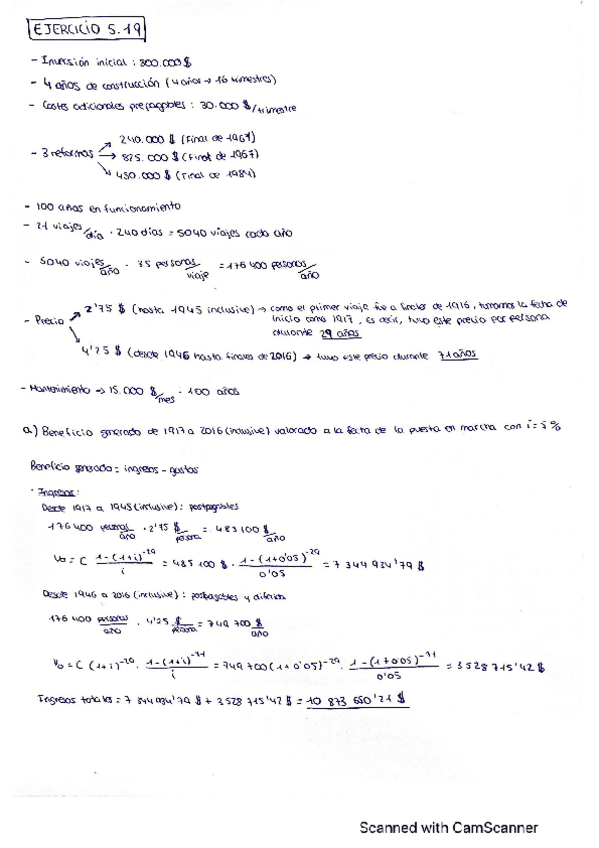 EJERCICIO 5.19
- Inversión inicial: 300.000 $
- 4 años de construcción (4 años → 16 trimestres)
- Costes adicionales prepagables: 30.000 $/trimestre
240.000 $ (Final de
- 3 reformas → 875.000 $ (Final de 1967)
450.000 $ (Final de 1984)
- 100 años en funcionamiento
- 21 viajes/día · 240 días = 5040 viajes cada año
- 5040 viajes/año · 35 personas/viaje = 176 400 personas/año
2'75 $ (hasta 1945 inclusive) → como el primer viaje fue a finales de 1916, tomamos la fecha de
inicio como 1917, es decir, tuvo este precio por persona
- Precio
durante 29 años
4'25 $ (desde 1946 hasta finales de 2016) → tuvo este precio durante 71 años
- Mantenimiento → 15.000 $/mes · 100 años
a) Beneficio generado de 1917 a 2016 (inclusive) valorado a la fecha de la puesta en marcha con i = 5%
Beneficio generado = ingresos - gastos
· Ingresos:
Desde 1917 a 1945 (inclusive): postpagables
176 400 personas/año · 2'75 $/persona = 485 100 $/año
V₀ = C 1-(1+i)⁻²⁹/i = 485 100 $ · 1-(1+0'05)⁻²⁹/0'05 = 7 344 934'79 $
Desde 1946 a 2016 (inclusive): postpagables y diferida
176 400 personas/año · 4'25 $/persona = 749 700 $/año
V₀ = C (1+i)⁻²⁹ · 1-(1+i)⁻⁷¹/i = 749 700 (1+0'05)⁻²⁹ · 1-(1+0'05)⁻⁷¹/0'05 = 3 528 715'42 $
Ingresos totales = 7 344 934'79 $ + 3 528 715'42 $ = 10 873 650'21 $
Scanned with CamScanner